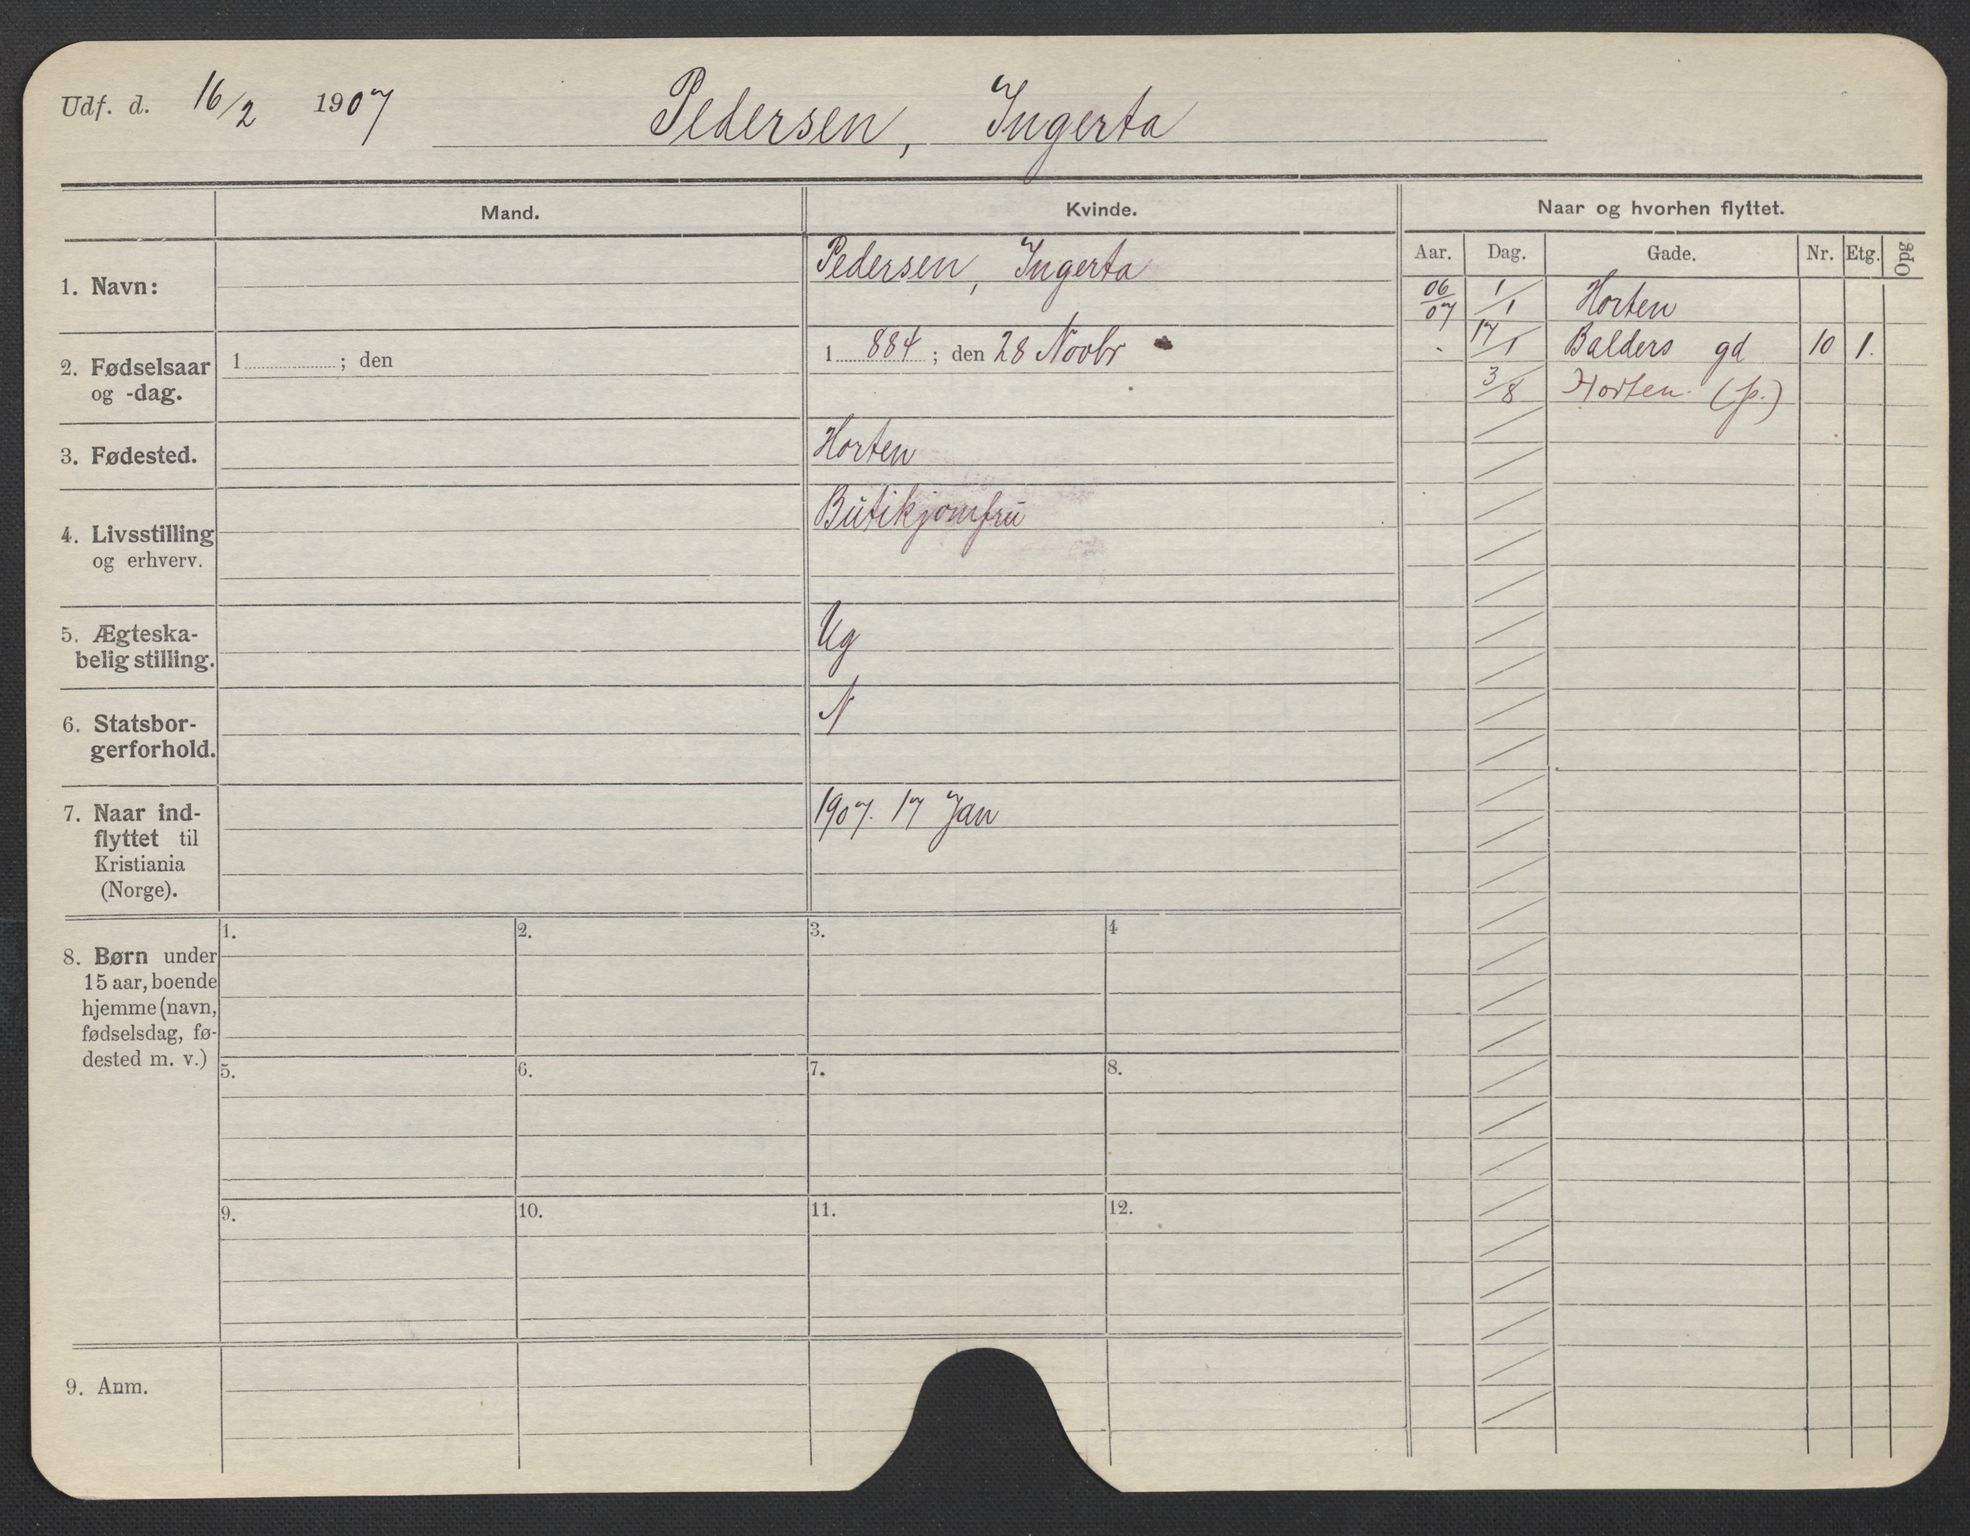 Udf. d. 16/2 1907 Pedersen, Ingerta
Mand.
Kvinde.
Naar og hvorhen flyttet.
Aar. Dag. Gade. Nr. Etg. Opg
1. Navn:
Pedersen, Ingerta
2. Fødselsaar
og -dag.
1 ; den
1 884 ; den 28 Novbr
3. Fødested.
Horten
4. Livsstilling
og erhverv.
Butikjomfru
5. Ægteska-
belig stilling.
Ug
6. Statsbor-
gerforhold.
N
7. Naar ind-
flyttet til
Kristiania
(Norge).
1907. 17 Jan
06/07 1/1 Horten
" 17/1 Balders gd 10 1.
3/8 Horten. (p.)
8. Børn under
15 aar, boende
hjemme (navn,
fødselsdag, fø-
dested m. v.)
1. 2. 3. 4
5. 6. 7. 8.
9. 10. 11. 12.
9. Anm.